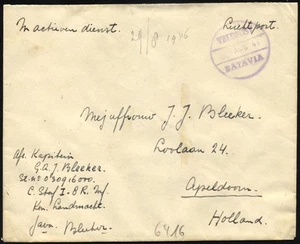 In actieven dienst.
29/8 1946
Luchtpost.
BATAVIA
Mejuffrouw J. J. Bleeker.
Loolaan 24.
Apeldoorn.
Holland.
Afs. Kapitein
G.A.J. Bleeker.
C. Staf I-8 R. Inf.
Kon. Landmacht.
Java.
6416